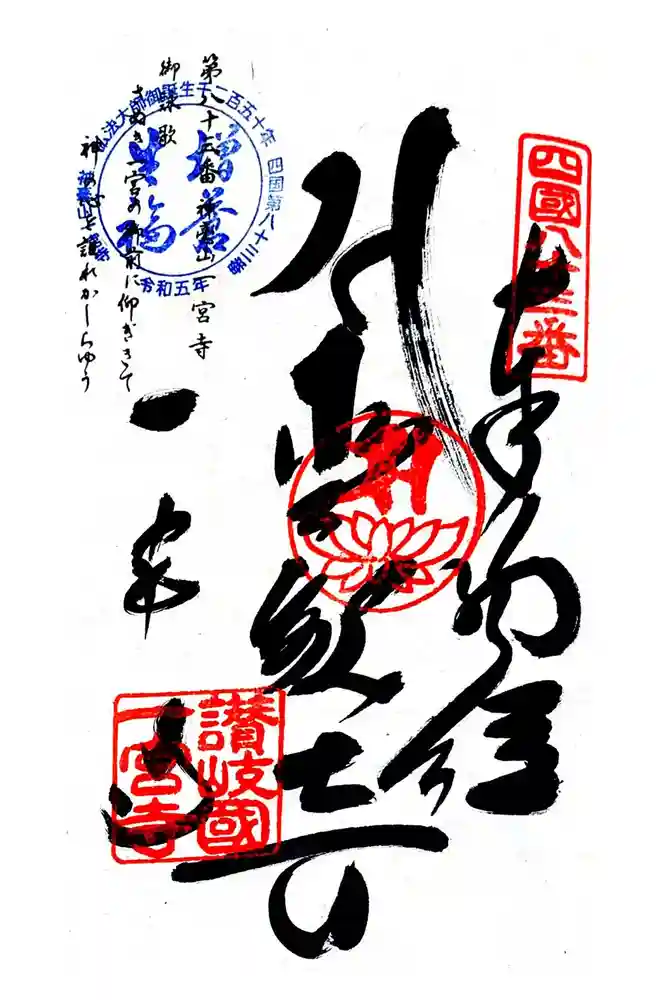 四國八十三番
奉納経
讚岐國
一宮寺
第八十三番 神毫山 一宮寺
御詠歌
さぬき一宮の御前に仰ぎきて
神の心を誰れかしらゆう
弘法大師御誕生千二百五十年
四国第八十三番
令和五年
増益
一宮寺